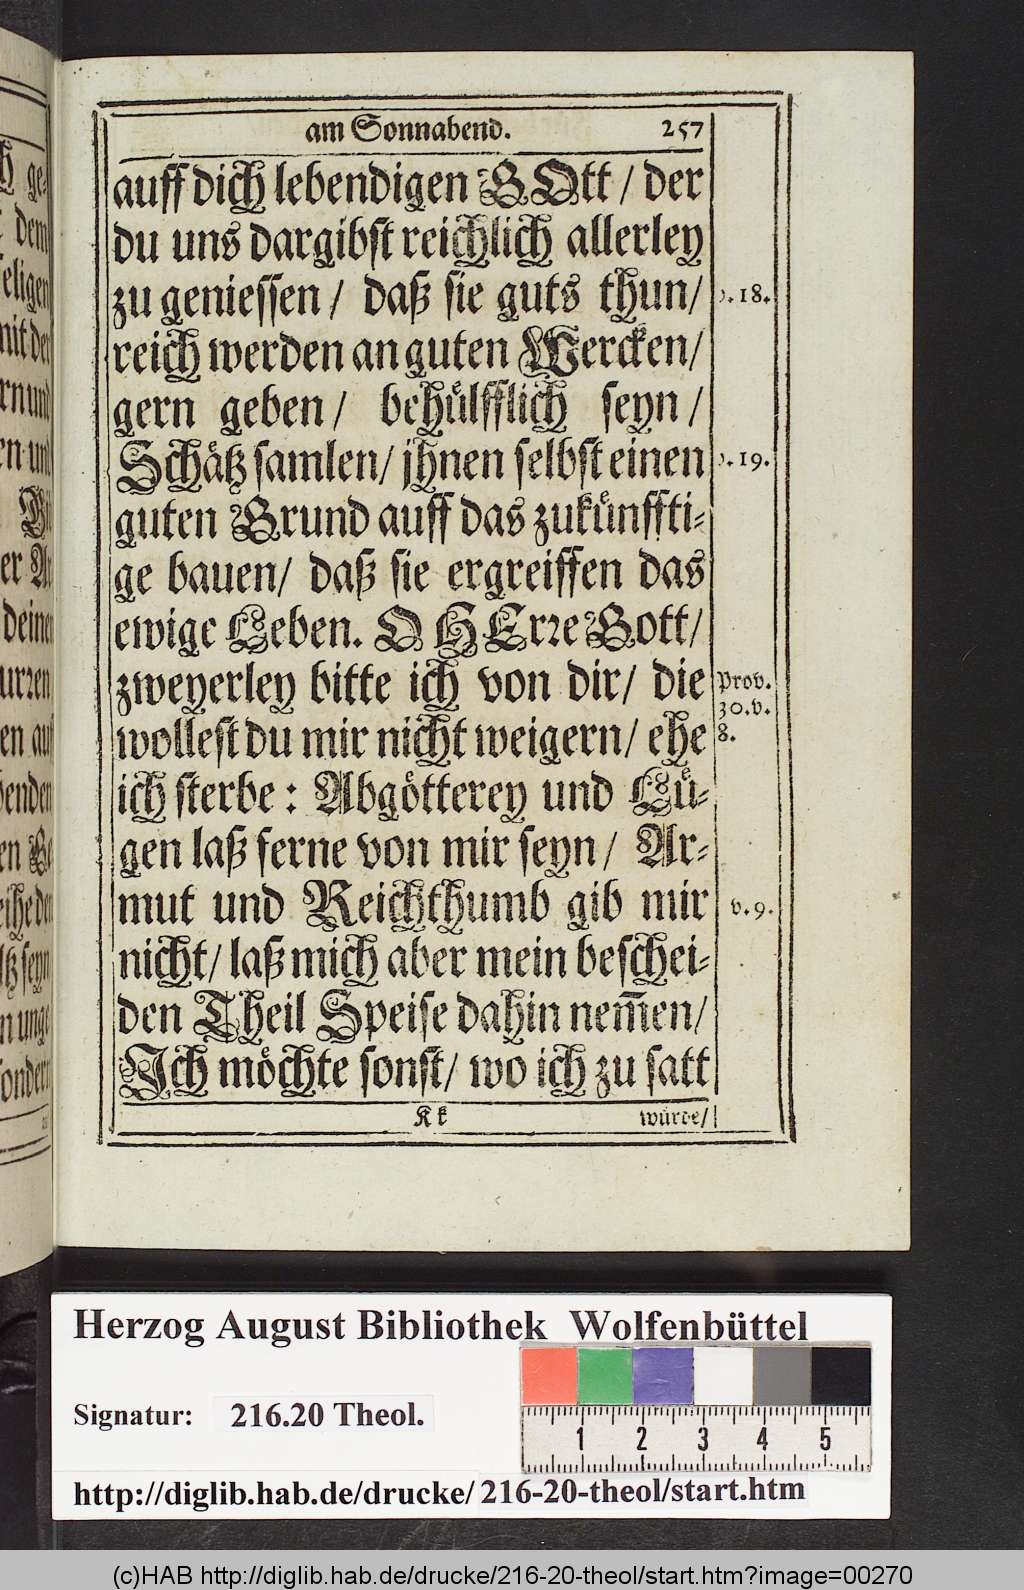 am Sonnabend. 257
auff dich lebendigen GOtt / der
du uns dargibst reichlich allerley
zu geniessen / daß sie guts thun/
v. 18.
reich werden an guten Wercken/
gern geben / behülfflich seyn /
Schätz samlen/ jhnen selbst einen
v. 19.
guten Grund auff das zukünffti-
ge bauen/ daß sie ergreiffen das
ewige Leben. O HErre Gott/
zweyerley bitte ich von dir/ die
Prov.
30. v.
8.
wollest du mir nicht weigern/ ehe
ich sterbe : Abgötterey und Lü-
gen laß ferne von mir seyn / Ar-
mut und Reichthumb gib mir
v. 9.
nicht/ laß mich aber mein beschei-
den Theil Speise dahin nem̃en/
Ich möchte sonst/ wo ich zu satt
Kk würde/
Herzog August Bibliothek Wolfenbüttel
Signatur: 216.20 Theol.
1 2 3 4 5
http://diglib.hab.de/drucke/216-20-theol/start.htm
(c)HAB http://diglib.hab.de/drucke/216-20-theol/start.htm?image=00270